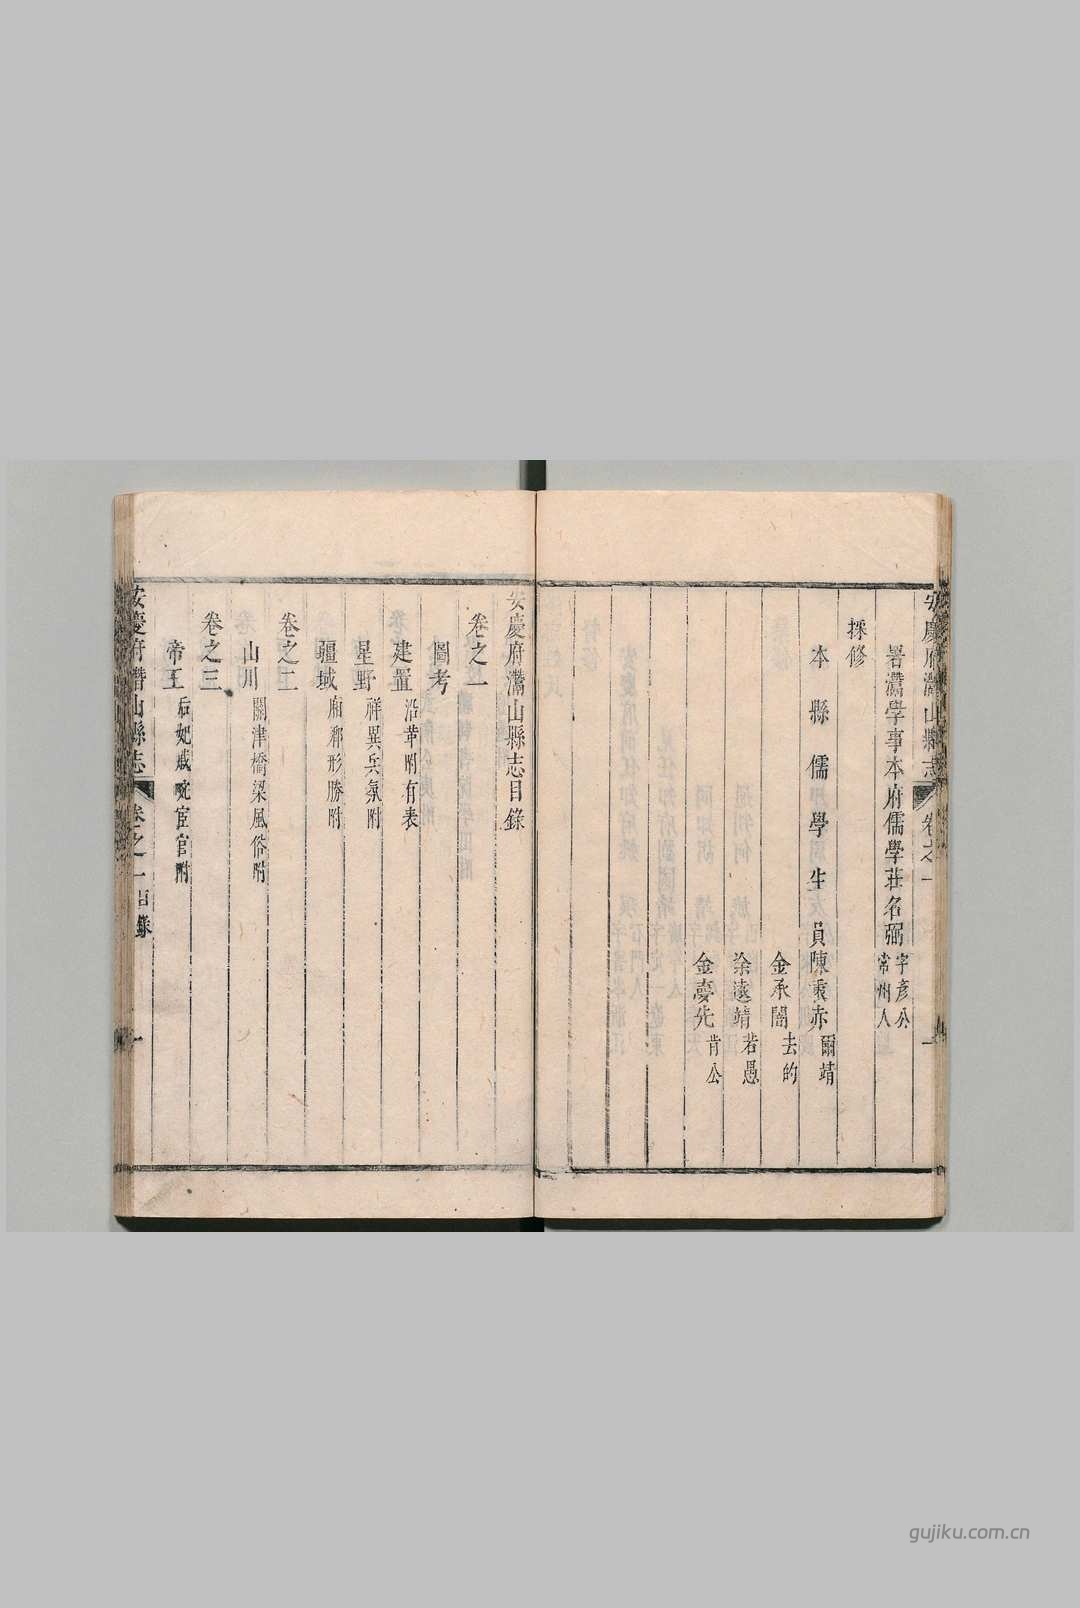 安慶府灊山縣志
卷之一
一
署灊學事本府儒學莊名弼字彥公常州人
採修
本縣儒學生員陳秉赤爾靖
金承閣去的
涂遠靖若愚
金夢先肯公
安慶府灊山縣志目錄
卷之一
圖考
建置沿革附有表
星野祥異兵氛附
疆域廂鄉形勝附
卷之二
山川關津橋梁風俗附
卷之三
帝王后妃戚畹宦官附
安慶府潛山縣志
卷之一目錄
一
gujiku.com.cn